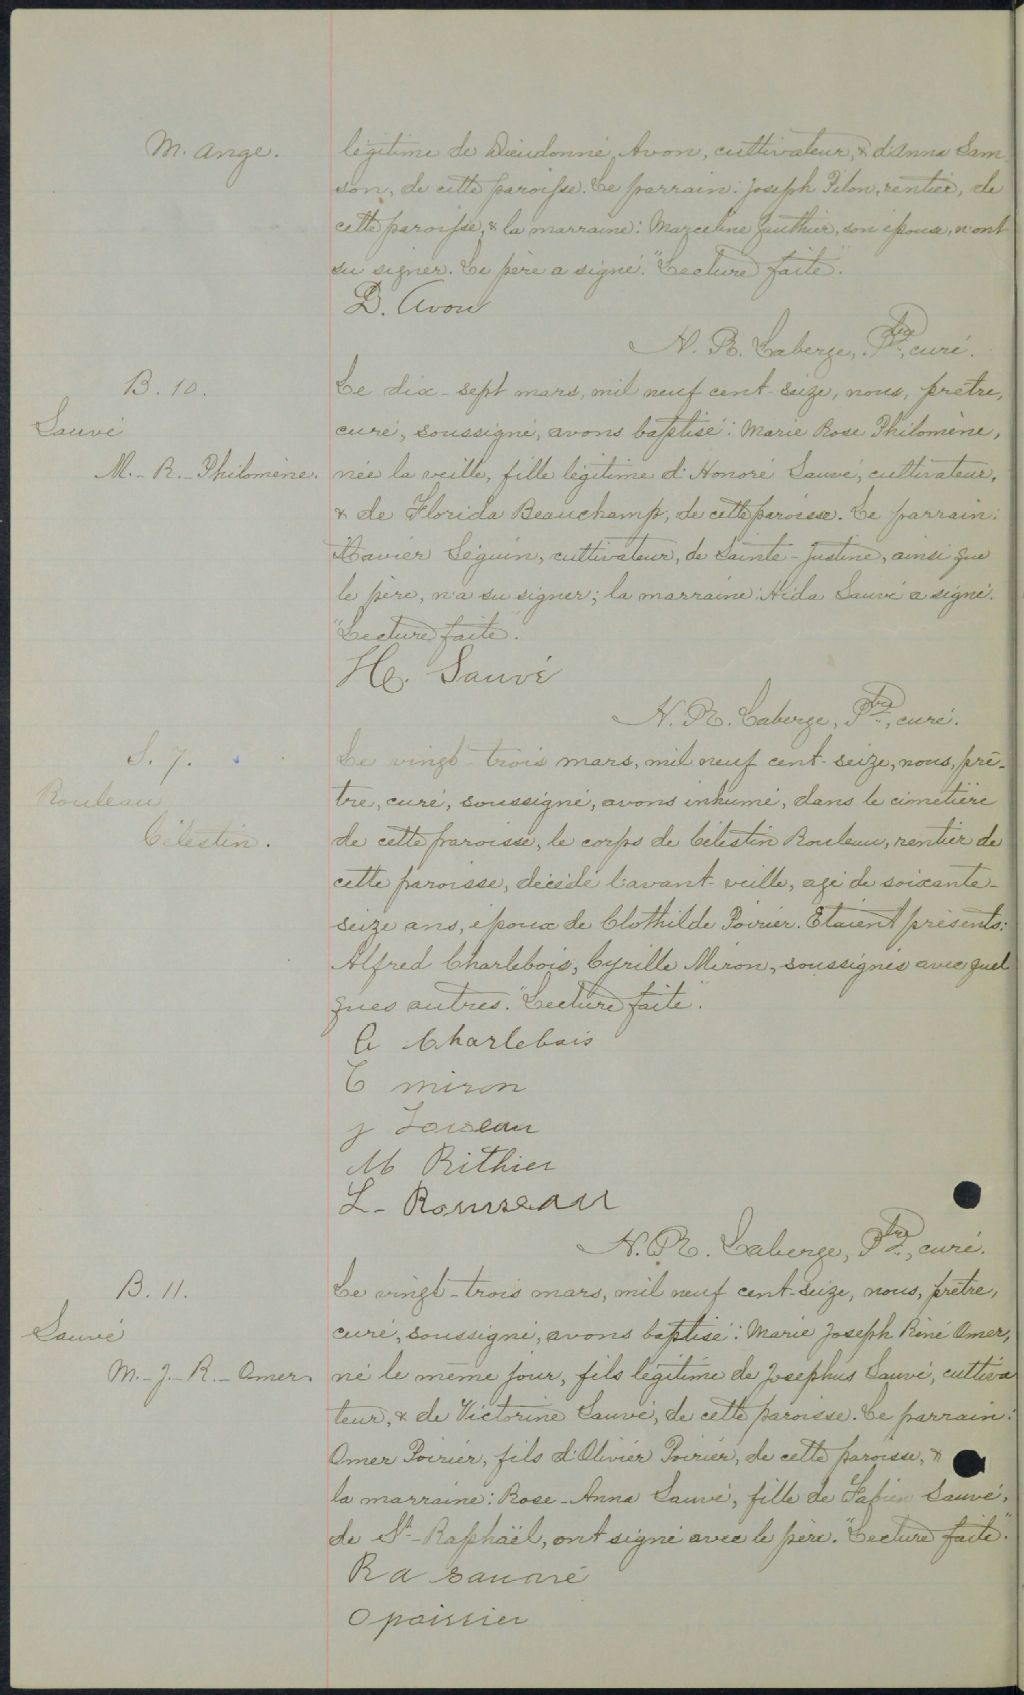 M. Ange.
légitime de Dieudonné Avon, cultivateur, & d'Anna Sam
son, de cette paroisse. Le parrain: Joseph Pilon, rentier, de
cette paroisse, & la marraine: Marceline Gauthier, son épouse, n'ont
su signer. Le père a signé. "Lecture faite".
D. Avon
N. R. Laberge, Ptre, curé.
B. 10.
Sauvé
M.-R.-Philomène.
Le dix-sept mars, mil neuf cent-seize, nous, prêtre,
curé, soussigné, avons baptisé: Marie Rose Philomène,
née la veille, fille légitime d'Honoré Sauvé, cultivateur,
& de Florida Beauchamp, de cette paroisse. Le parrain:
Xavier Séguin, cultivateur, de Sainte-Justine, ainsi que
le père, n'a su signer; la marraine: Aída Sauvé a signé.
"Lecture faite".
H. Sauvé
N. R. Laberge, Ptre, curé.
S. 7.
Rouleau
Célestin.
Le vingt-trois mars, mil neuf cent-seize, nous, prê-
tre, curé, soussigné, avons inhumé, dans le cimetière
de cette paroisse, le corps de Célestin Rouleau, rentier de
cette paroisse, décédé l'avant-veille, agé de soixante-
seize ans, époux de Clothilde Poirier. Etaient présents:
Alfred Charlebois, Cyrille Miron, soussignés avec quel
ques autres. "Lecture faite".
A Charlebois
C miron
J
M Rithier
L- Rousseau
N. R. Laberge, Ptre, curé.
B. 11.
Sauvé
M.-J.-R.-Omer.
Le vingt-trois mars, mil neuf cent-seize, nous, prêtre,
curé, soussigné, avons baptisé: Marie Joseph Réné Omer,
né le même jour, fils légitime de Josephus Sauvé, cultiva
teur, & de Victorine Sauvé, de cette paroisse. Le parrain:
Omer Poirier, fils d'Olivier Poirier, de cette paroisse, &
la marraine: Rose-Anna Sauvé, fille de Fabien Sauvé,
de St-Raphaël, ont signé avec le père. "Lecture faite".
R a sauvé
O poirier